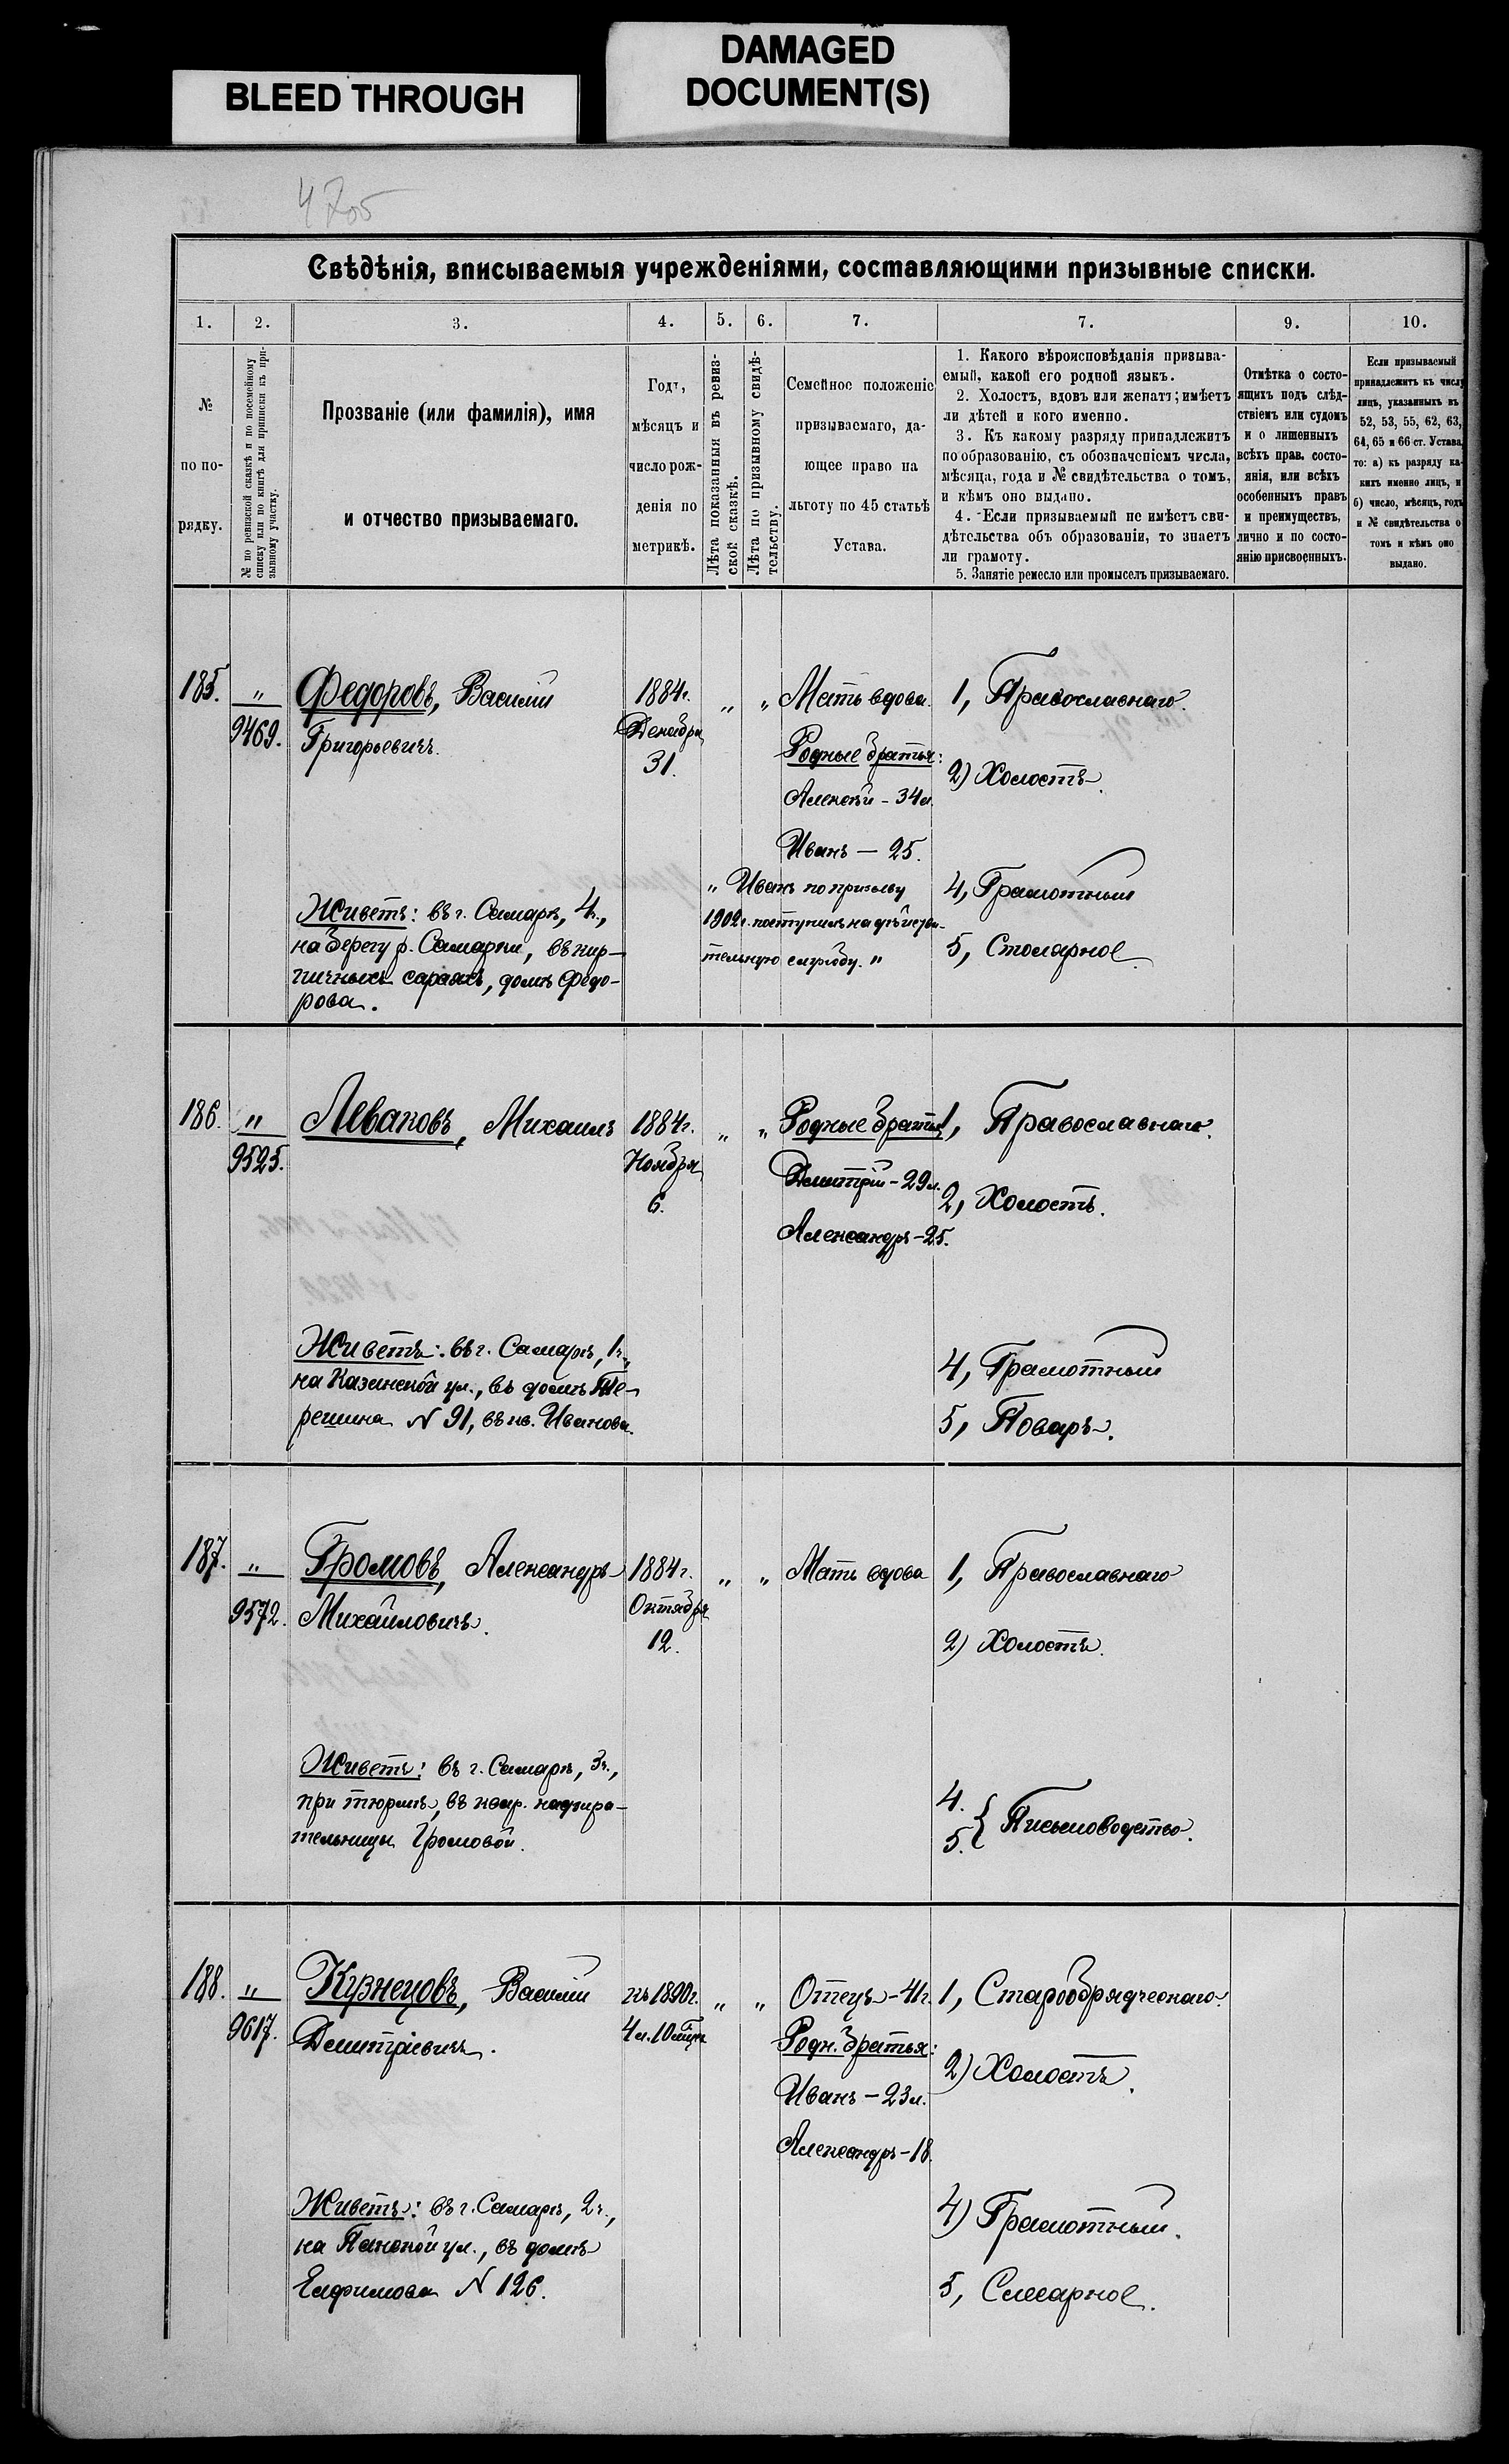 BLEED THROUGH
DAMAGED
DOCUMENT(S)
4705
Свѣдѣнія, вписываемыя учрежденіями, составляющими призывные списки.
1. 2. 3. 4. 5. 6. 7. 7. 9. 10.
№
по по-
рядку.
№ по ревизской сказкѣ и по посемейному
списку или по книгѣ для приписки къ при-
зывному участку.
Прозваніе (или фамилія), имя
и отчество призываемаго.
Годъ,
мѣсяцъ и
число рож-
денія по
метрикѣ.
Лѣта показанныя въ ревиз-
ской сказкѣ.
Лѣта по призывному свидѣ-
тельству.
Семейное положеніе
призываемаго, да-
ющее право на
льготу по 45 статьѣ
Устава.
1. Какого вѣроисповѣданія призыва-
емый, какой его родной языкъ.
2. Холостъ, вдовъ или женатъ; имѣетъ
ли дѣтей и кого именно.
3. Къ какому разряду принадлежитъ
по образованію, съ обозначеніемъ числа,
мѣсяца, года и № свидѣтельства о томъ,
и кѣмъ оно выдано.
4. Если призываемый не имѣетъ сви-
дѣтельства объ образованіи, то знаетъ
ли грамоту.
5. Занятіе ремесло или промыселъ призываемаго.
Отмѣтка о состо-
ящихъ подъ слѣд-
ствіемъ или судомъ
и о лишенныхъ
всѣхъ прав. состо-
янія, или всѣхъ
особенныхъ правъ
и преимуществъ,
лично и по состо-
янію присвоенныхъ.
Если призываемый
принадлежитъ къ числу
лицъ, указанныхъ въ
52, 53, 55, 62, 63,
64, 65 и 66 ст. Устава,
то: а) къ разряду ка-
кихъ именно лицъ, и
б) число, мѣсяцъ, годъ
и № свидѣтельства о
томъ и кѣмъ оно
выдано.
185. „ Федоровъ, Василій 1884г. „ „ Мать вдова. 1, Православнаго.
9469. Григорьевичъ. Декабря Родные братья:
31. 2) Холостъ.
Алексѣй - 34л.
Иванъ — 25.
„ Иванъ по призыву 4, Грамотный
Живетъ: въ г. Самарѣ, 4ч., 1902г. поступилъ на дѣйстви-
на берегу р. Самарки, въ кир- тельную службу. „ 5, Столярное.
пичныхъ сараяхъ, домъ Федо-
рова.
186. „ Левановъ, Михаилъ 1884г. „ „ Родные братья: 1, Православнаго.
9525. Ноября Дмитрій - 29л.
6. 2, Холостъ.
Александръ - 25.
Живетъ: въ г. Самарѣ, 1ч., 4, Грамотный
на Казанской ул., въ домѣ Те-
решина N 91, въ кв. Иванова. 5, Поваръ.
187. „ Громовъ, Александръ 1884г. „ „ Мать вдова 1, Православнаго
9572. Михайловичъ. Октября
12. 2) Холостъ.
Живетъ: въ г. Самарѣ, 3ч.,
при тюрьмѣ, въ квар. надзира- 4.
5. { Письмоводство.
тельницы Громовой.
188. „ Кузнецовъ, Василій къ 1890г. „ „ Отецъ - 41г. 1, Старообрядческаго.
9617. Дмитріевичъ. 4л. 10мѣц. Родн. братья:
2) Холостъ.
Иванъ - 23л.
Александръ - 18.
Живетъ: въ г. Самарѣ, 2ч., 4) Грамотный.
на Панской ул., въ домѣ
Ефимова N 126. 5, Слесарное.